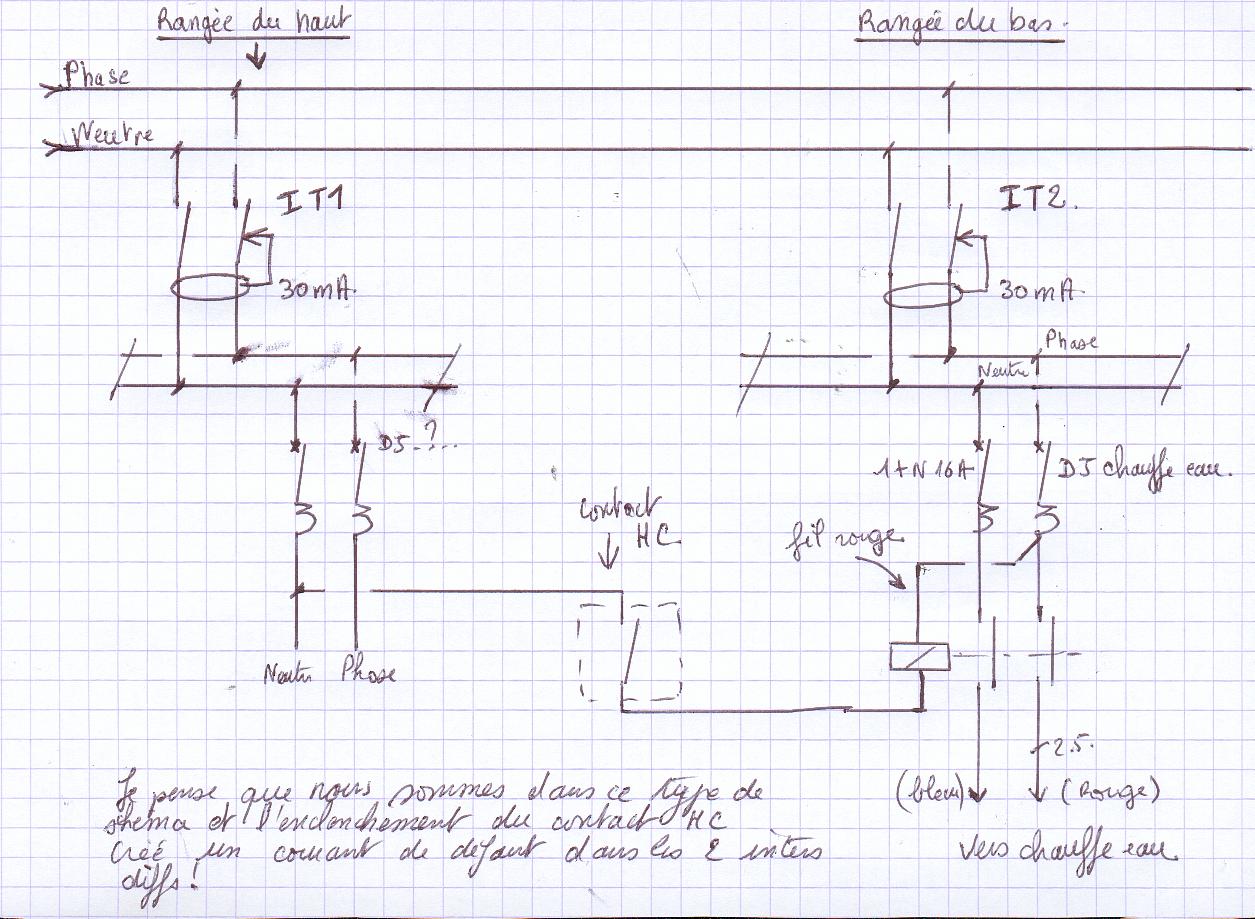 Rangée du haut
Rangée du bas.
Phase
Neutre
IT1
IT2.
30mA.
30mA.
Phase
Neutre
DJ..?..
1+N 16A
DJ chauffe eau.
contact
HC
fil rouge
Neutre
Phase
2.5.
(bleu)
(Rouge)
Vers chauffe eau.
Je pense que nous sommes dans ce type de
shema et l'enclenchement du contact HC
Créé un courant de défaut dans les 2 inters
diffs!